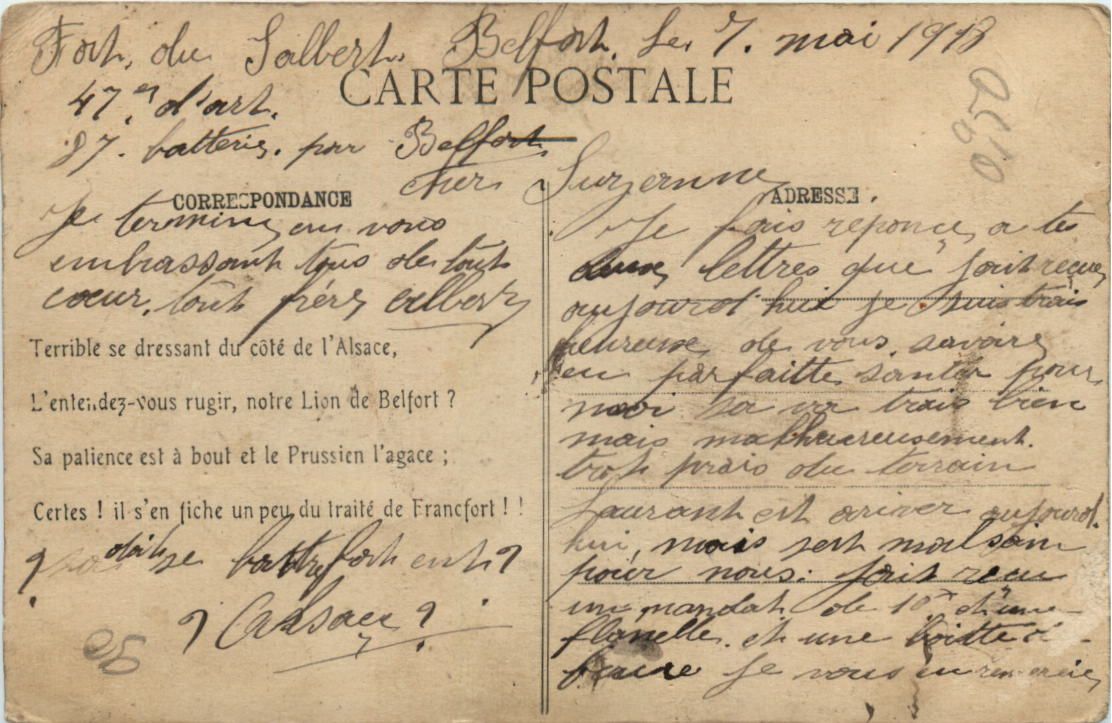 Fort du Salbert. Belfort. Le 7. mai 1918
CARTE POSTALE
47er d'art.
87. batterie. par Belfort
cher Suzenne
CORRESPONDANCE
Je termine en vous
embrassant tous de tout
cœur. tout frère Albert
Terrible se dressant du côté de l'Alsace,
L'entendez-vous rugir, notre Lion de Belfort ?
Sa patience est à bout et le Prussien l'agace ;
Certes ! il s'en fiche un peu du traité de Francfort ! !
? doit se battre fort en ?
? Alsace ?
ADRESSE
Je fais réponce a tes
deux lettres que jait reçue
aujourd'hui je suis trais
heureuse de vous savoire
en parfaitte santer pour
moi sa va trais bien
mais malhuereusement.
trop prais du terrain
Laurant est ariver aujourd.
hui, mais sest malsain
pour nous. jait recu
un mandat de 10f d'une
flanelle. et une boitte d
beure je vous en remercie